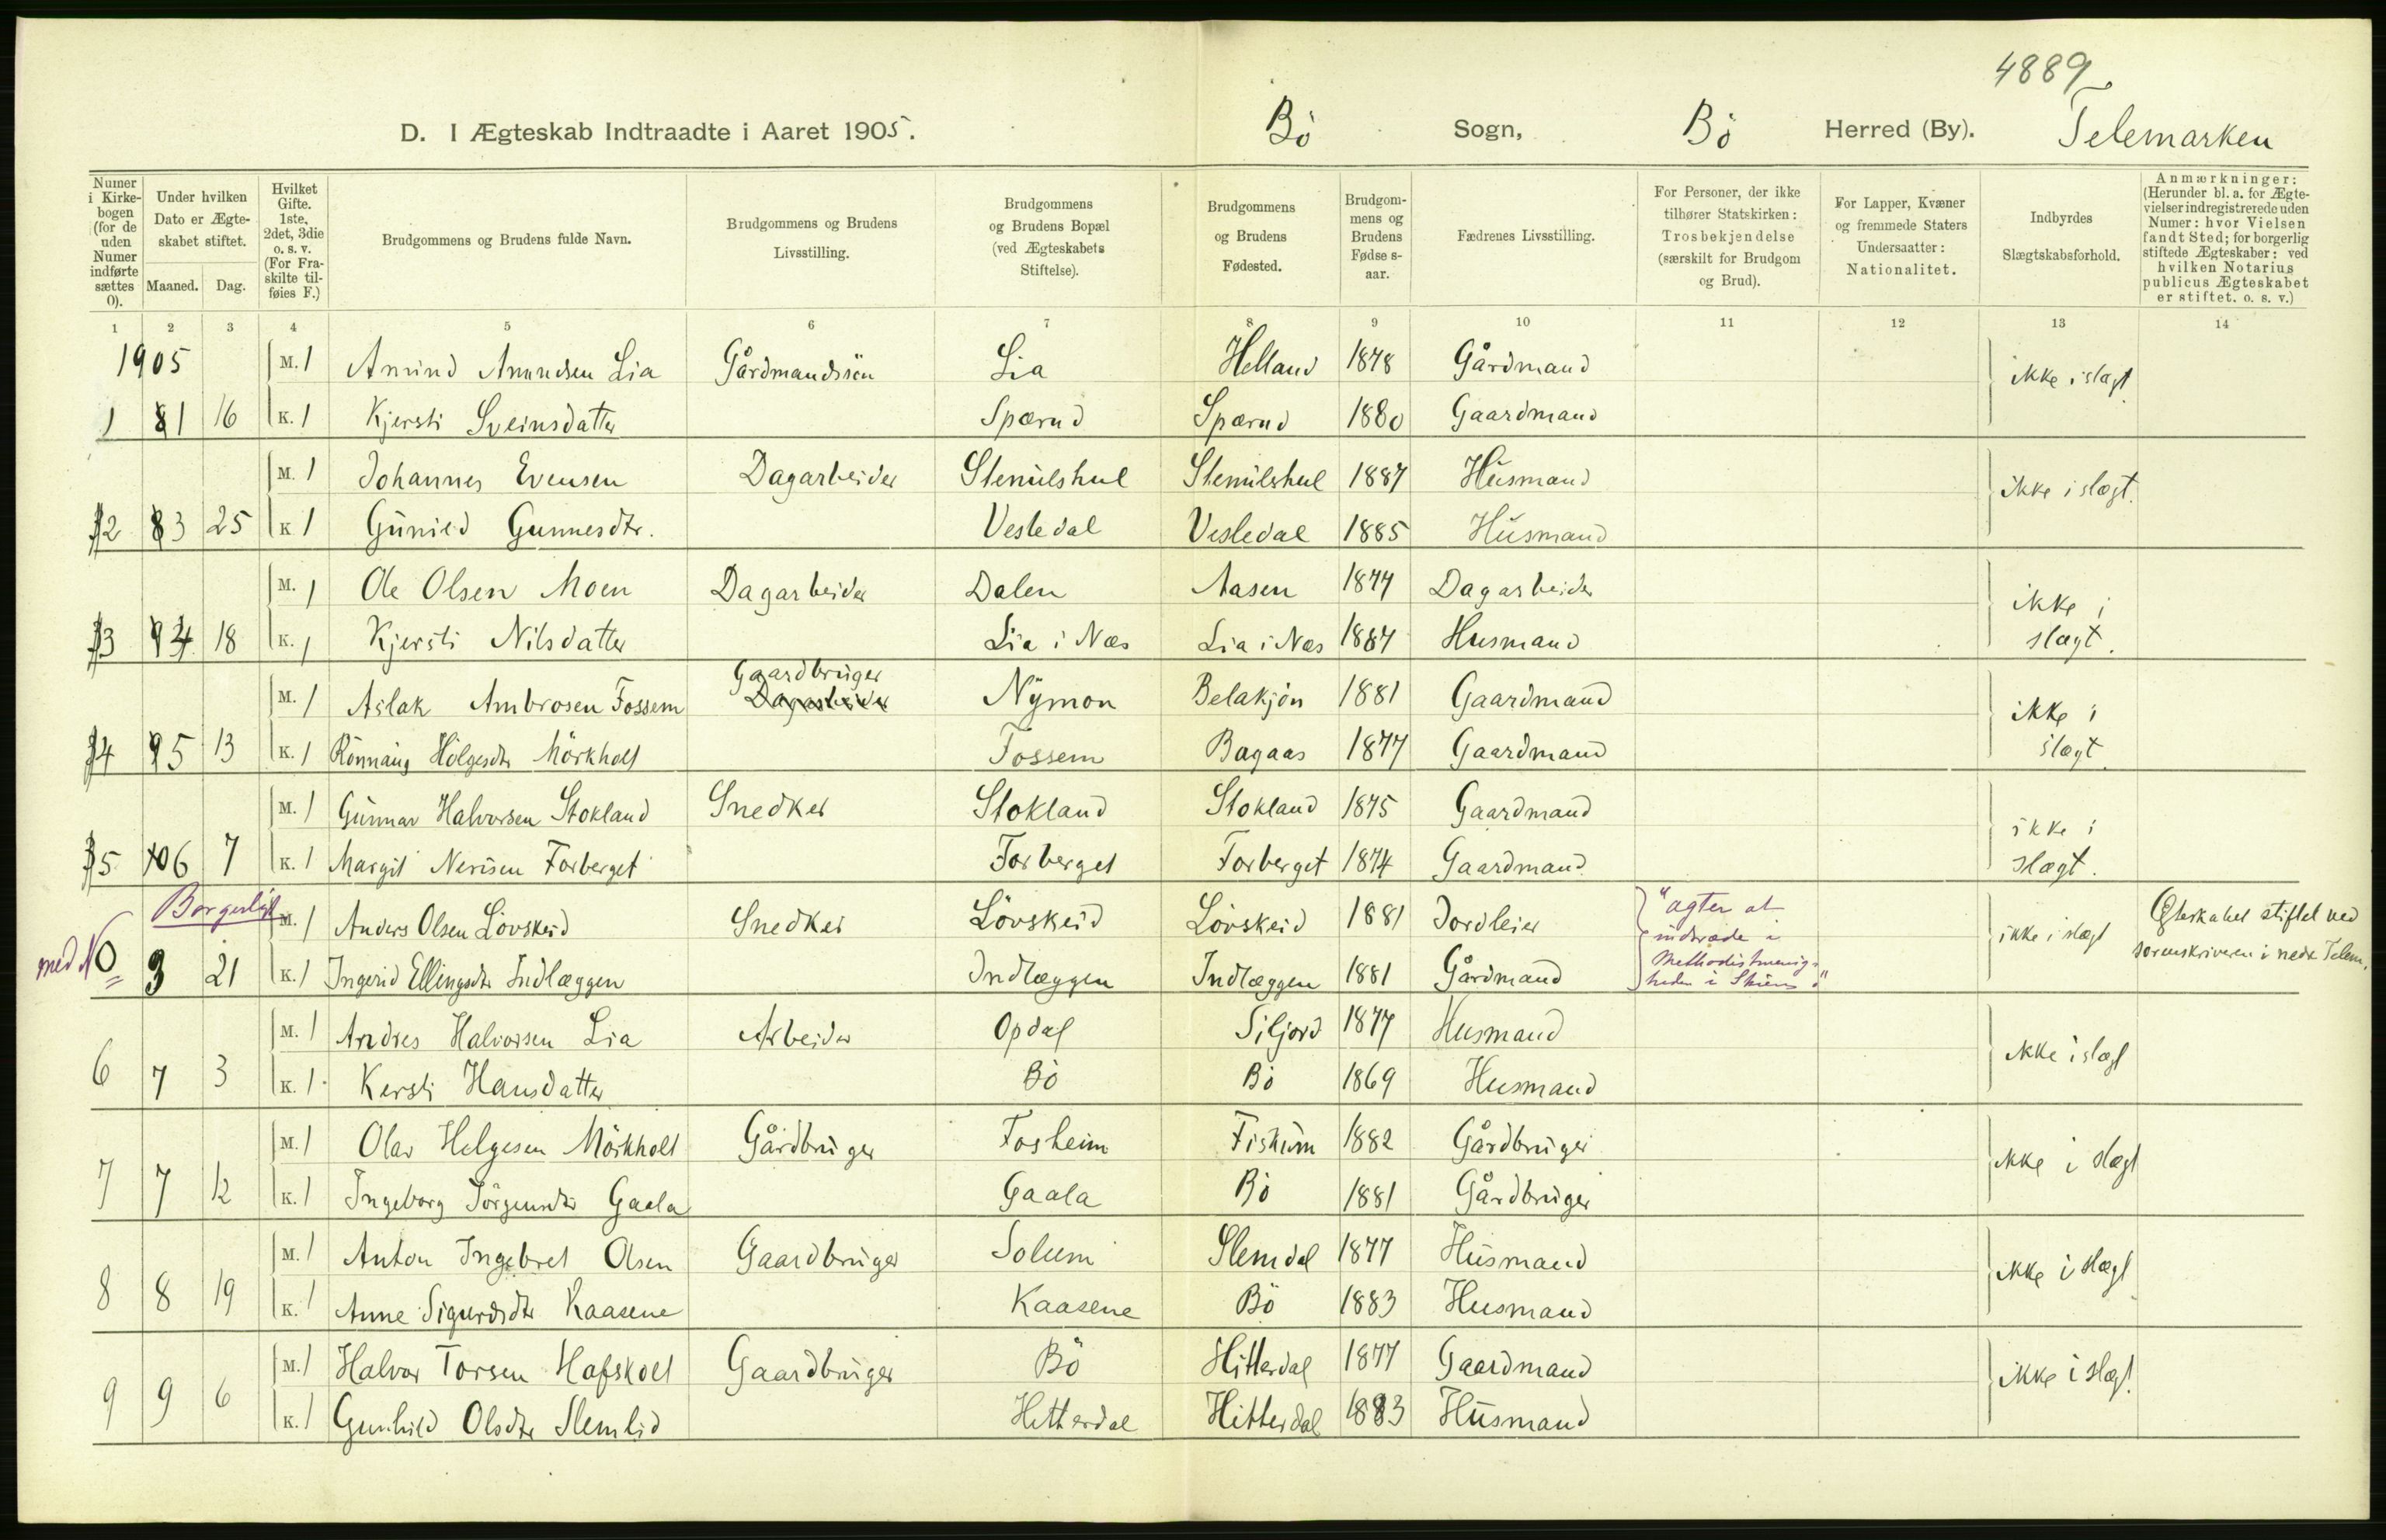 4889
D. I Ægteskab Indtraadte i Aaret 1905. Bö Sogn, Bö Herred (By). Telemarken
Numer i Kirkebogen (for de uden Numer indførte sættes 0).
Under hvilken Dato er Ægteskabet stiftet.
Maaned. Dag.
Hvilket Gifte. 1ste, 2det, 3die o. s. v. (For Fraskilte tilføies F.)
Brudgommens og Brudens fulde Navn.
Brudgommens og Brudens Livsstilling.
Brudgommens og Brudens Bopæl (ved Ægteskabets Stiftelse).
Brudgommens og Brudens Fødested.
Brudgommens og Brudens Fødselsaar.
Fædrenes Livsstilling.
For Personer, der ikke tilhører Statskirken: Trosbekjendelse (særskilt for Brudgom og Brud).
For Lapper, Kvæner og fremmede Staters Undersaatter: Nationalitet.
Indbyrdes Slægtskabsforhold.
Anmærkninger: (Herunder bl. a. for Ægtevielser indregistrerede uden Numer: hvor Vielsen fandt Sted; for borgerlig stiftede Ægteskaber: ved hvilken Notarius publicus Ægteskabet er stiftet. o. s. v.)
1 2 3 4 5 6 7 8 9 10 11 12 13 14
1905 M. 1 Amund Amundsen Lia Gårdmandssön Lia Helland 1878 Gårdmand ikke i slægt
1 1 16 K. 1 Kjersti Sveinsdatter Spærud Spærud 1880 Gaardmand
M. 1 Johannes Evensen Dagarbeider Stenulshul Stenulshul 1887 Husmand ikke i slægt.
2 3 25 K 1 Gunild Gunnesdtr. Vesledal Vesledal 1885 Husmand
M. 1 Ole Olsen Moen Dagarbeider Dalen Aasen 1877 Dagarbeider ikke i
3 4 18 K. 1 Kjersti Nilsdatter Lia i Næs Lia i Næs 1887 Husmand slægt.
Gaardbruger
M. 1 Aslak Ambrosen Fossem Dagarbeider Nymon Belakjön 1881 Gaardmand ikke i
4 5 13 K. 1 Rönnaug Holgesdtr Mörkholt Fossem Bagaas 1877 Gaardmand slægt
M. 1 Gunnar Halvorsen Stokland Snedker Stokland Stokland 1875 Gaardmand ikke i
5 6 7 K. 1 Margit Nerisen Forberget Forberget Forberget 1874 Gaardmand slægt.
Borgerligt M. 1 Anders Olsen Lövskeid Snedker Lövskeid Lövskeid 1881 Jordleier "agter at indtræde i ikke i slægt Ægteskabet stiftet ved
med No 0 3 21 K. 1 Ingerid Ellingsdtr Indlæggen Indlæggen Indlæggen 1881 Gårdmand Methodistmenigheden i Skien" sorenskriveren i nedre Telem.
M. 1 Andres Halvorsen Lia Arbeider Opdal Siljord 1877 Husmand ikke i slægt
6 7 3 K. 1 Kersti Hansdatter Bö Bö 1869 Husmand
M. 1 Olav Helgesen Mörkholt Gårdbruger Fosheim Fiskum 1882 Gårdbruger ikke i slægt
7 7 12 K. 1 Ingeborg Jörgensdtr Gaala Gaala Bö 1881 Gårdbruger
M. 1 Anton Ingebret Olsen Gaardbruger Solum Slemdal 1877 Husmand ikke i slægt
8 8 19 K. 1 Anne Sigurdsdtr Kaasene Kaasene Bö 1883 Husmand
M. 1 Halvor Torsen Hafskolt Gaardbruger Bö Hitterdal 1877 Gaardmand ikke i slægt.
9 9 6 K. 1 Gunhild Olsdtr Slemlid Hitterdal Hitterdal 1883 Husmand